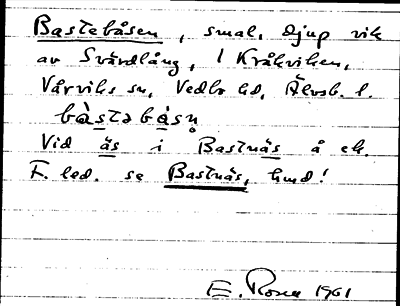 Bastebåsen, smal, djup vik
av Svärdlång, I Kråkviken,
Vårviks sn, Vedbo hd, Älvsb. l.
bàstabåsn̥
Vid äs i Bastnäs å ek.
F. led. se Bastnäs, hmd!
E. Rosen 1961